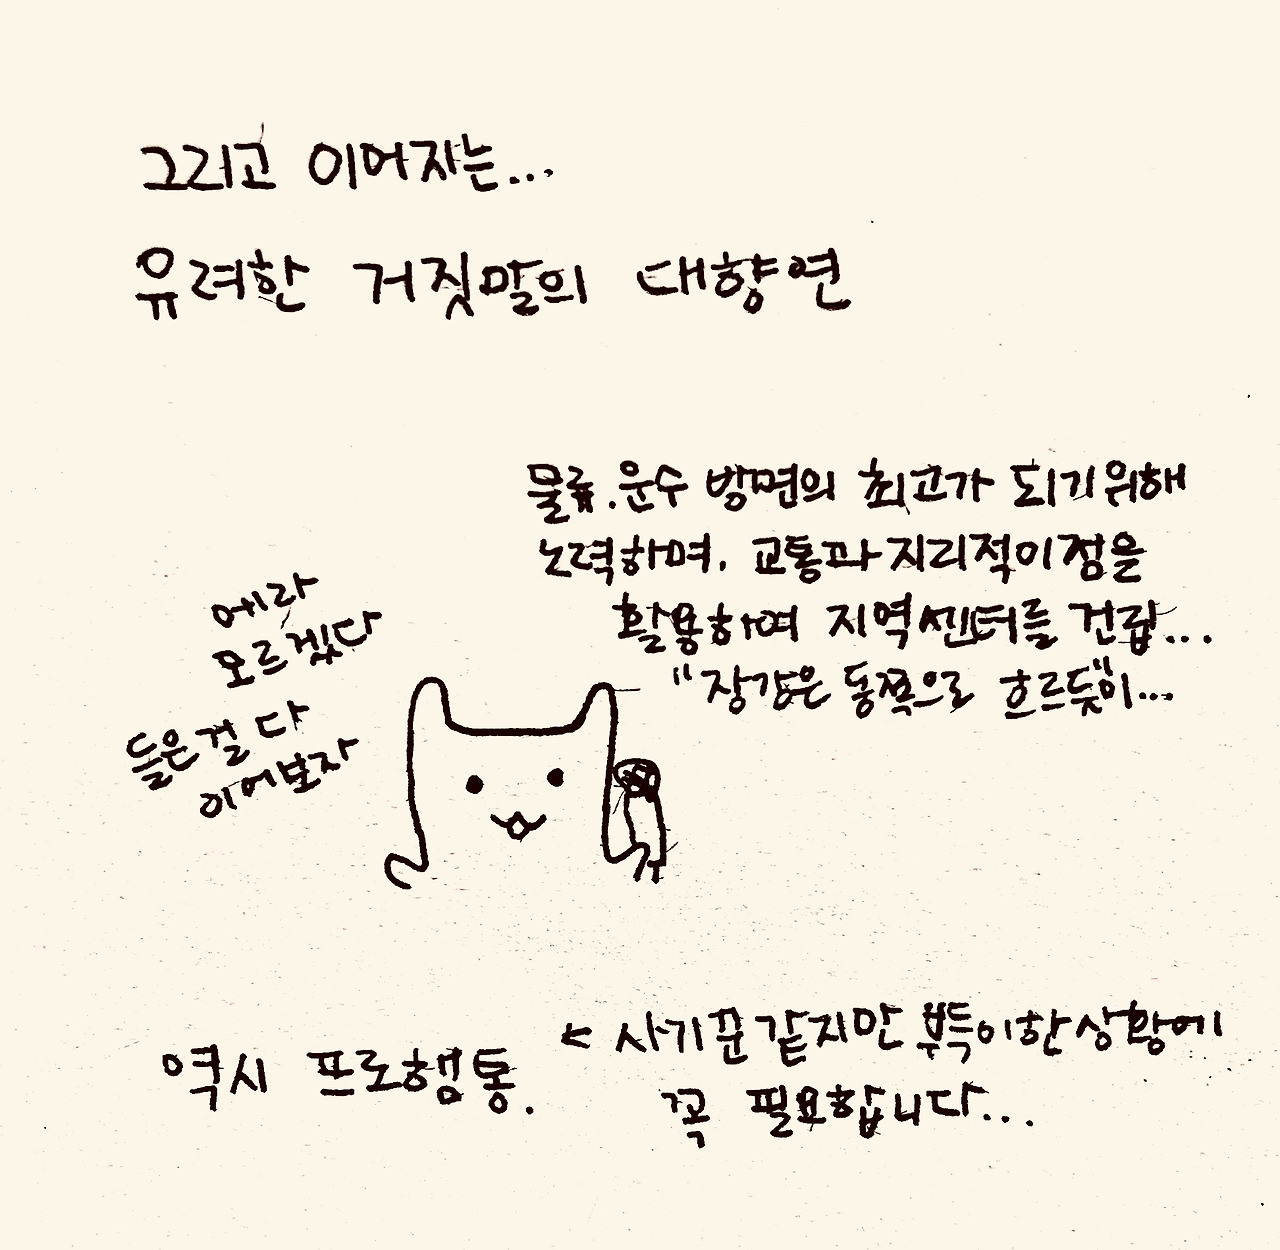 그리고 이어지는...
유려한 거짓말의 대향연
물류.운수 방면의 최고가 되기위해
노력하며, 교통과 지리적이점을
활용하여 지역센터를 건립...
"장강은 동쪽으로 흐르듯"이...
에라
모르겠다
들은걸 다
이어보자
역시 프로햄통.
< 사기꾼같지만 부득이한상황에
꼭 필요합니다...